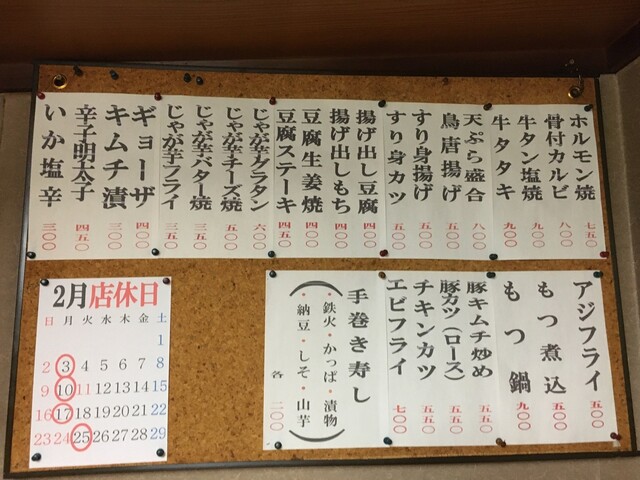 ホルモン焼 七五〇
骨付カルビ 八〇〇
牛タン塩焼 九〇〇
牛タタキ 九〇〇
天ぷら盛合 八〇〇
鳥唐揚げ 五〇〇
すり身揚げ 五〇〇
すり身カツ 五〇〇
揚げ出し豆腐 四〇〇
揚げ出しもち 四〇〇
豆腐生姜焼 四〇〇
豆腐ステーキ 四五〇
じゃが芋グラタン 六〇〇
じゃが芋チーズ焼 五〇〇
じゃが芋バター焼 三五〇
じゃが芋フライ 三五〇
ギョーザ 四〇〇
キムチ漬 三〇〇
辛子明太子 四五〇
いか塩辛 三〇〇
アジフライ 五〇〇
もつ煮込 五〇〇
もつ鍋 九〇〇
豚キムチ炒め 五五〇
豚カツ(ロース) 五五〇
チキンカツ 五五〇
エビフライ 七〇〇
手巻き寿し
(・鉄火・かっぱ・漬物
・納豆・しそ・山芋)
各 二〇〇
2月店休日
日 月 火 水 木 金 土
1
2 3 4 5 6 7 8
9 10 11 12 13 14 15
16 17 18 19 20 21 22
23 24 25 26 27 28 29